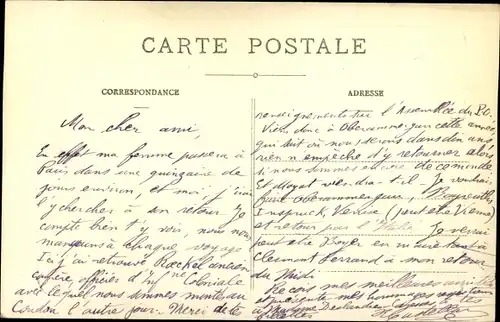 CARTE POSTALE
CORRESPONDANCE
Mon cher ami,
En effet ma femme passera à
Paris dans une quinzaine de
jours environ, et moi j'irai
l'y chercher à son retour. Je
compte bien t'y voir, nous nous
manquons à chaque voyage
Ici j'ai retrouvé ancien
confrère, officier d' Coloniale
avec lequel nous sommes montés au
Coudon l'autre jour. Merci de tes
ADRESSE
renseignements sur l'Assemblée du
Viens donc à Oberammergau cette année
qui suit où nous serons dans dix ans
rien n'empêche d'y retourner alors
si nous sommes en vie
Et Moyat viendra-t-il. Je voudrais
Oberammergau, Bayreuth,
Inspruck, Venise (peut être Vienne)
et retour par l'Italie. Je verrai
peut être Boyer en m'arrêtant à
Clermont Ferrand à mon retour
du Midi
Reçois mes meilleures amitiés
et mes hommages
à Madame